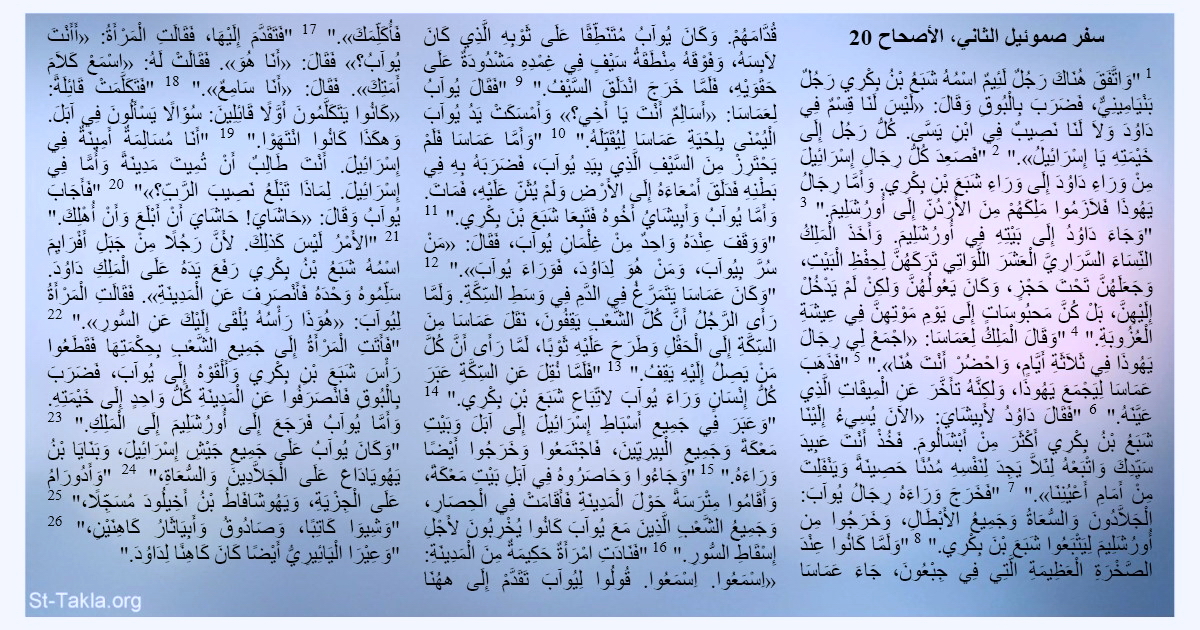 سفر صموئيل الثاني، الأصحاح 20
1 "وَاتَّفَقَ هُنَاكَ رَجُلٌ لَئِيمٌ اسْمُهُ شَبَعُ بْنُ بِكْرِي رَجُلٌ
بَنْيَامِينِيٌّ، فَضَرَبَ بِالْبُوقِ وَقَالَ: «لَيْسَ لَنَا قِسْمٌ فِي
دَاوُدَ وَلاَ لَنَا نَصِيبٌ فِي ابْنِ يَسَّى. كُلُّ رَجُل إِلَى
خَيْمَتِهِ يَا إِسْرَائِيلُ»." 2 "فَصَعِدَ كُلُّ رِجَالِ إِسْرَائِيلَ
مِنْ وَرَاءِ دَاوُدَ إِلَى وَرَاءِ شَبَعَ بْنِ بِكْرِي. وَأَمَّا رِجَالُ
يَهُوذَا فَلاَزَمُوا مَلِكَهُمْ مِنَ الأُرْدُنِّ إِلَى أُورُشَلِيمَ." 3
"وَجَاءَ دَاوُدُ إِلَى بَيْتِهِ فِي أُورُشَلِيمَ. وَأَخَذَ الْمَلِكُ
النِّسَاءَ السَّرَارِيَّ الْعَشَرَ اللَّوَاتِي تَرَكَهُنَّ لِحِفْظِ الْبَيْتِ،
وَجَعَلَهُنَّ تَحْتَ حَجْزٍ، وَكَانَ يَعُولُهُنَّ وَلكِنْ لَمْ يَدْخُلْ
إِلَيْهِنَّ، بَلْ كُنَّ مَحْبُوسَاتٍ إِلَى يَوْمِ مَوْتِهِنَّ فِي عِيشَةِ
الْعُزُوبَةِ." 4 "وَقَالَ الْمَلِكُ لِعَمَاسَا: «اجْمَعْ لِي رِجَالَ
يَهُوذَا فِي ثَلاَثَةِ أَيَّامٍ، وَاحْضُرْ أَنْتَ هُنَا»." 5 "فَذَهَبَ
عَمَاسَا لِيَجْمَعَ يَهُوذَا، وَلكِنَّهُ تَأَخَّرَ عَنِ الْمِيقَاتِ الَّذِي
عَيَّنَهُ." 6 "فَقَالَ دَاوُدُ لأَبِيشَايَ: «الآنَ يُسِيءُ إِلَيْنَا
شَبَعُ بْنُ بِكْرِي أَكْثَرَ مِنْ أَبْشَالُومَ. فَخُذْ أَنْتَ عَبِيدَ
سَيِّدِكَ وَاتْبَعْهُ لِئَلاَّ يَجِدَ لِنَفْسِهِ مُدُنًا حَصِينَةً وَيَنْفَلِتَ
مِنْ أَمَامِ أَعْيُنِنَا»." 7 "فَخَرَجَ وَرَاءَهُ رِجَالُ يُوآبَ:
الْجَلاَّدُونَ وَالسُّعَاةُ وَجَمِيعُ الأَبْطَالِ، وَخَرَجُوا مِنْ
أُورُشَلِيمَ لِيَتْبَعُوا شَبَعَ بْنَ بِكْرِي." 8 "وَلَمَّا كَانُوا عِنْدَ
الصَّخْرَةِ الْعَظِيمَةِ الَّتِي فِي جِبْعُونَ، جَاءَ عَمَاسَا
قُدَّامَهُمْ. وَكَانَ يُوآبُ مُتَنَطِّقًا عَلَى ثَوْبِهِ الَّذِي كَانَ
لاَبِسَهُ، وَفَوْقَهُ مِنْطَقَةُ سَيْفٍ فِي غِمْدِهِ مَشْدُودَةٌ عَلَى
حَقْوَيْهِ، فَلَمَّا خَرَجَ انْدَلَقَ السَّيْفُ." 9 "فَقَالَ يُوآبُ
لِعَمَاسَا: «أَسَالِمٌ أَنْتَ يَا أَخِي؟» وَأَمْسَكَتْ يَدُ يُوآبَ
الْيُمْنَى بِلِحْيَةِ عَمَاسَا لِيُقَبِّلَهُ." 10 "وَأَمَّا عَمَاسَا فَلَمْ
يَحْتَرِزْ مِنَ السَّيْفِ الَّذِي بِيَدِ يُوآبَ، فَضَرَبَهُ بِهِ فِي
بَطْنِهِ فَدَلَقَ أَمْعَاءَهُ إِلَى الأَرْضِ وَلَمْ يُثَنِّ عَلَيْهِ، فَمَاتَ.
وَأَمَّا يُوآبُ وَأَبِيشَايُ أَخُوهُ فَتَبِعَا شَبَعَ بْنَ بِكْرِي." 11
"وَوَقَفَ عِنْدَهُ وَاحِدٌ مِنْ غِلْمَانِ يُوآبَ، فَقَالَ: «مَنْ
سُرَّ بِيُوآبَ، وَمَنْ هُوَ لِدَاوُدَ، فَوَرَاءَ يُوآبَ»." 12
"وَكَانَ عَمَاسَا يَتَمَرَّغُ فِي الدَّمِ فِي وَسَطِ السِّكَّةِ. وَلَمَّا
رَأَى الرَّجُلُ أَنَّ كُلَّ الشَّعْبِ يَقِفُونَ، نَقَلَ عَمَاسَا مِنَ
السِّكَّةِ إِلَى الْحَقْلِ وَطَرَحَ عَلَيْهِ ثَوْبًا، لَمَّا رَأَى أَنَّ كُلَّ
مَنْ يَصِلُ إِلَيْهِ يَقِفُ." 13 "فَلَمَّا نُقِلَ عَنِ السِّكَّةِ عَبَرَ
كُلُّ إِنْسَانٍ وَرَاءَ يُوآبَ لاتِّبَاعِ شَبَعَ بْنِ بِكْرِي." 14
"وَعَبَرَ فِي جَمِيعِ أَسْبَاطِ إِسْرَائِيلَ إِلَى آبَلَ وَبَيْتِ
مَعْكَةَ وَجَمِيعِ الْبِيرِيِّينَ، فَاجْتَمَعُوا وَخَرَجُوا أَيْضًا
وَرَاءَهُ." 15 "وَجَاءُوا وَحَاصَرُوهُ فِي آبَلِ بَيْتِ مَعْكَةَ،
وَأَقَامُوا مِتْرَسَةً حَوْلَ الْمَدِينَةِ فَأَقَامَتْ فِي الْحِصَارِ،
وَجَمِيعُ الشَّعْبِ الَّذِينَ مَعَ يُوآبَ كَانُوا يُخْرِبُونَ لأَجْلِ
إِسْقَاطِ السُّورِ." 16 "فَنَادَتِ امْرَأَةٌ حَكِيمَةٌ مِنَ الْمَدِينَةِ:
«اِسْمَعُوا. اِسْمَعُوا. قُولُوا لِيُوآبَ تَقَدَّمْ إِلَى ههُنَا
فَأُكَلِّمَكَ»." 17 "فَتَقَدَّمَ إِلَيْهَا، فَقَالَتِ الْمَرْأَةُ: «أَأَنْتَ
يُوآبُ؟» فَقَالَ: «أَنَا هُوَ». فَقَالَتْ لَهُ: «اسْمَعْ كَلاَمَ
أَمَتِكَ». فَقَالَ: «أَنَا سَامِعٌ»." 18 "فَتَكَلَّمَتْ قَائِلَةً:
«كَانُوا يَتَكَلَّمُونَ أَوَّلاً قَائِلِينَ: سُؤَالاً يَسْأَلُونَ فِي آبَلَ.
وَهكَذَا كَانُوا انْتَهَوْا." 19 "أَنَا مُسَالِمَةٌ أَمِينَةٌ فِي
إِسْرَائِيلَ. أَنْتَ طَالِبٌ أَنْ تُمِيتَ مَدِينَةً وَأُمًّا فِي
إِسْرَائِيلَ. لِمَاذَا تَبْلَعُ نَصِيبَ الرَّبِّ؟»" 20 "فَأَجَابَ
يُوآبُ وَقَالَ: «حَاشَايَ! حَاشَايَ أَنْ أَبْلَعَ وَأَنْ أُهْلِكَ."
21 "الأَمْرُ لَيْسَ كَذلِكَ. لأَنَّ رَجُلًا مِنْ جَبَلِ أَفْرَايِمَ
اسْمُهُ شَبَعُ بْنُ بِكْرِي رَفَعَ يَدَهُ عَلَى الْمَلِكِ دَاوُدَ.
سَلِّمُوهُ وَحْدَهُ فَأَنْصَرِفَ عَنِ الْمَدِينَةِ». فَقَالَتِ الْمَرْأَةُ
لِيُوآبَ: «هُوَذَا رَأْسُهُ يُلْقَى إِلَيْكَ عَنِ السُّورِ»." 22
"فَأَتَتِ الْمَرْأَةُ إِلَى جَمِيعِ الشَّعْبِ بِحِكْمَتِهَا فَقَطَعُوا
رَأْسَ شَبَعَ بْنِ بِكْرِي وَأَلْقَوْهُ إِلَى يُوآبَ، فَضَرَبَ
بِالْبُوقِ فَانْصَرَفُوا عَنِ الْمَدِينَةِ كُلُّ وَاحِدٍ إِلَى خَيْمَتِهِ.
وَأَمَّا يُوآبُ فَرَجَعَ إِلَى أُورُشَلِيمَ إِلَى الْمَلِكِ." 23
"وَكَانَ يُوآبُ عَلَى جَمِيعِ جَيْشِ إِسْرَائِيلَ، وَبَنَايَا بْنُ
يَهُويَادَاعَ عَلَى الْجَلاَّدِينَ وَالسُّعَاةِ،" 24 "وَأَدُورَامُ
عَلَى الْجِزْيَةِ، وَيَهُوشَافَاطُ بْنُ أَخِيلُودَ مُسَجِّلًا،" 25
"وَشِيوَا كَاتِبًا، وَصَادُوقُ وَأَبِيَاثَارُ كَاهِنَيْنِ،" 26
"وَعِيرَا الْيَائِيرِيُّ أَيْضًا كَانَ كَاهِنًا لِدَاوُدَ."
St-Takla.org